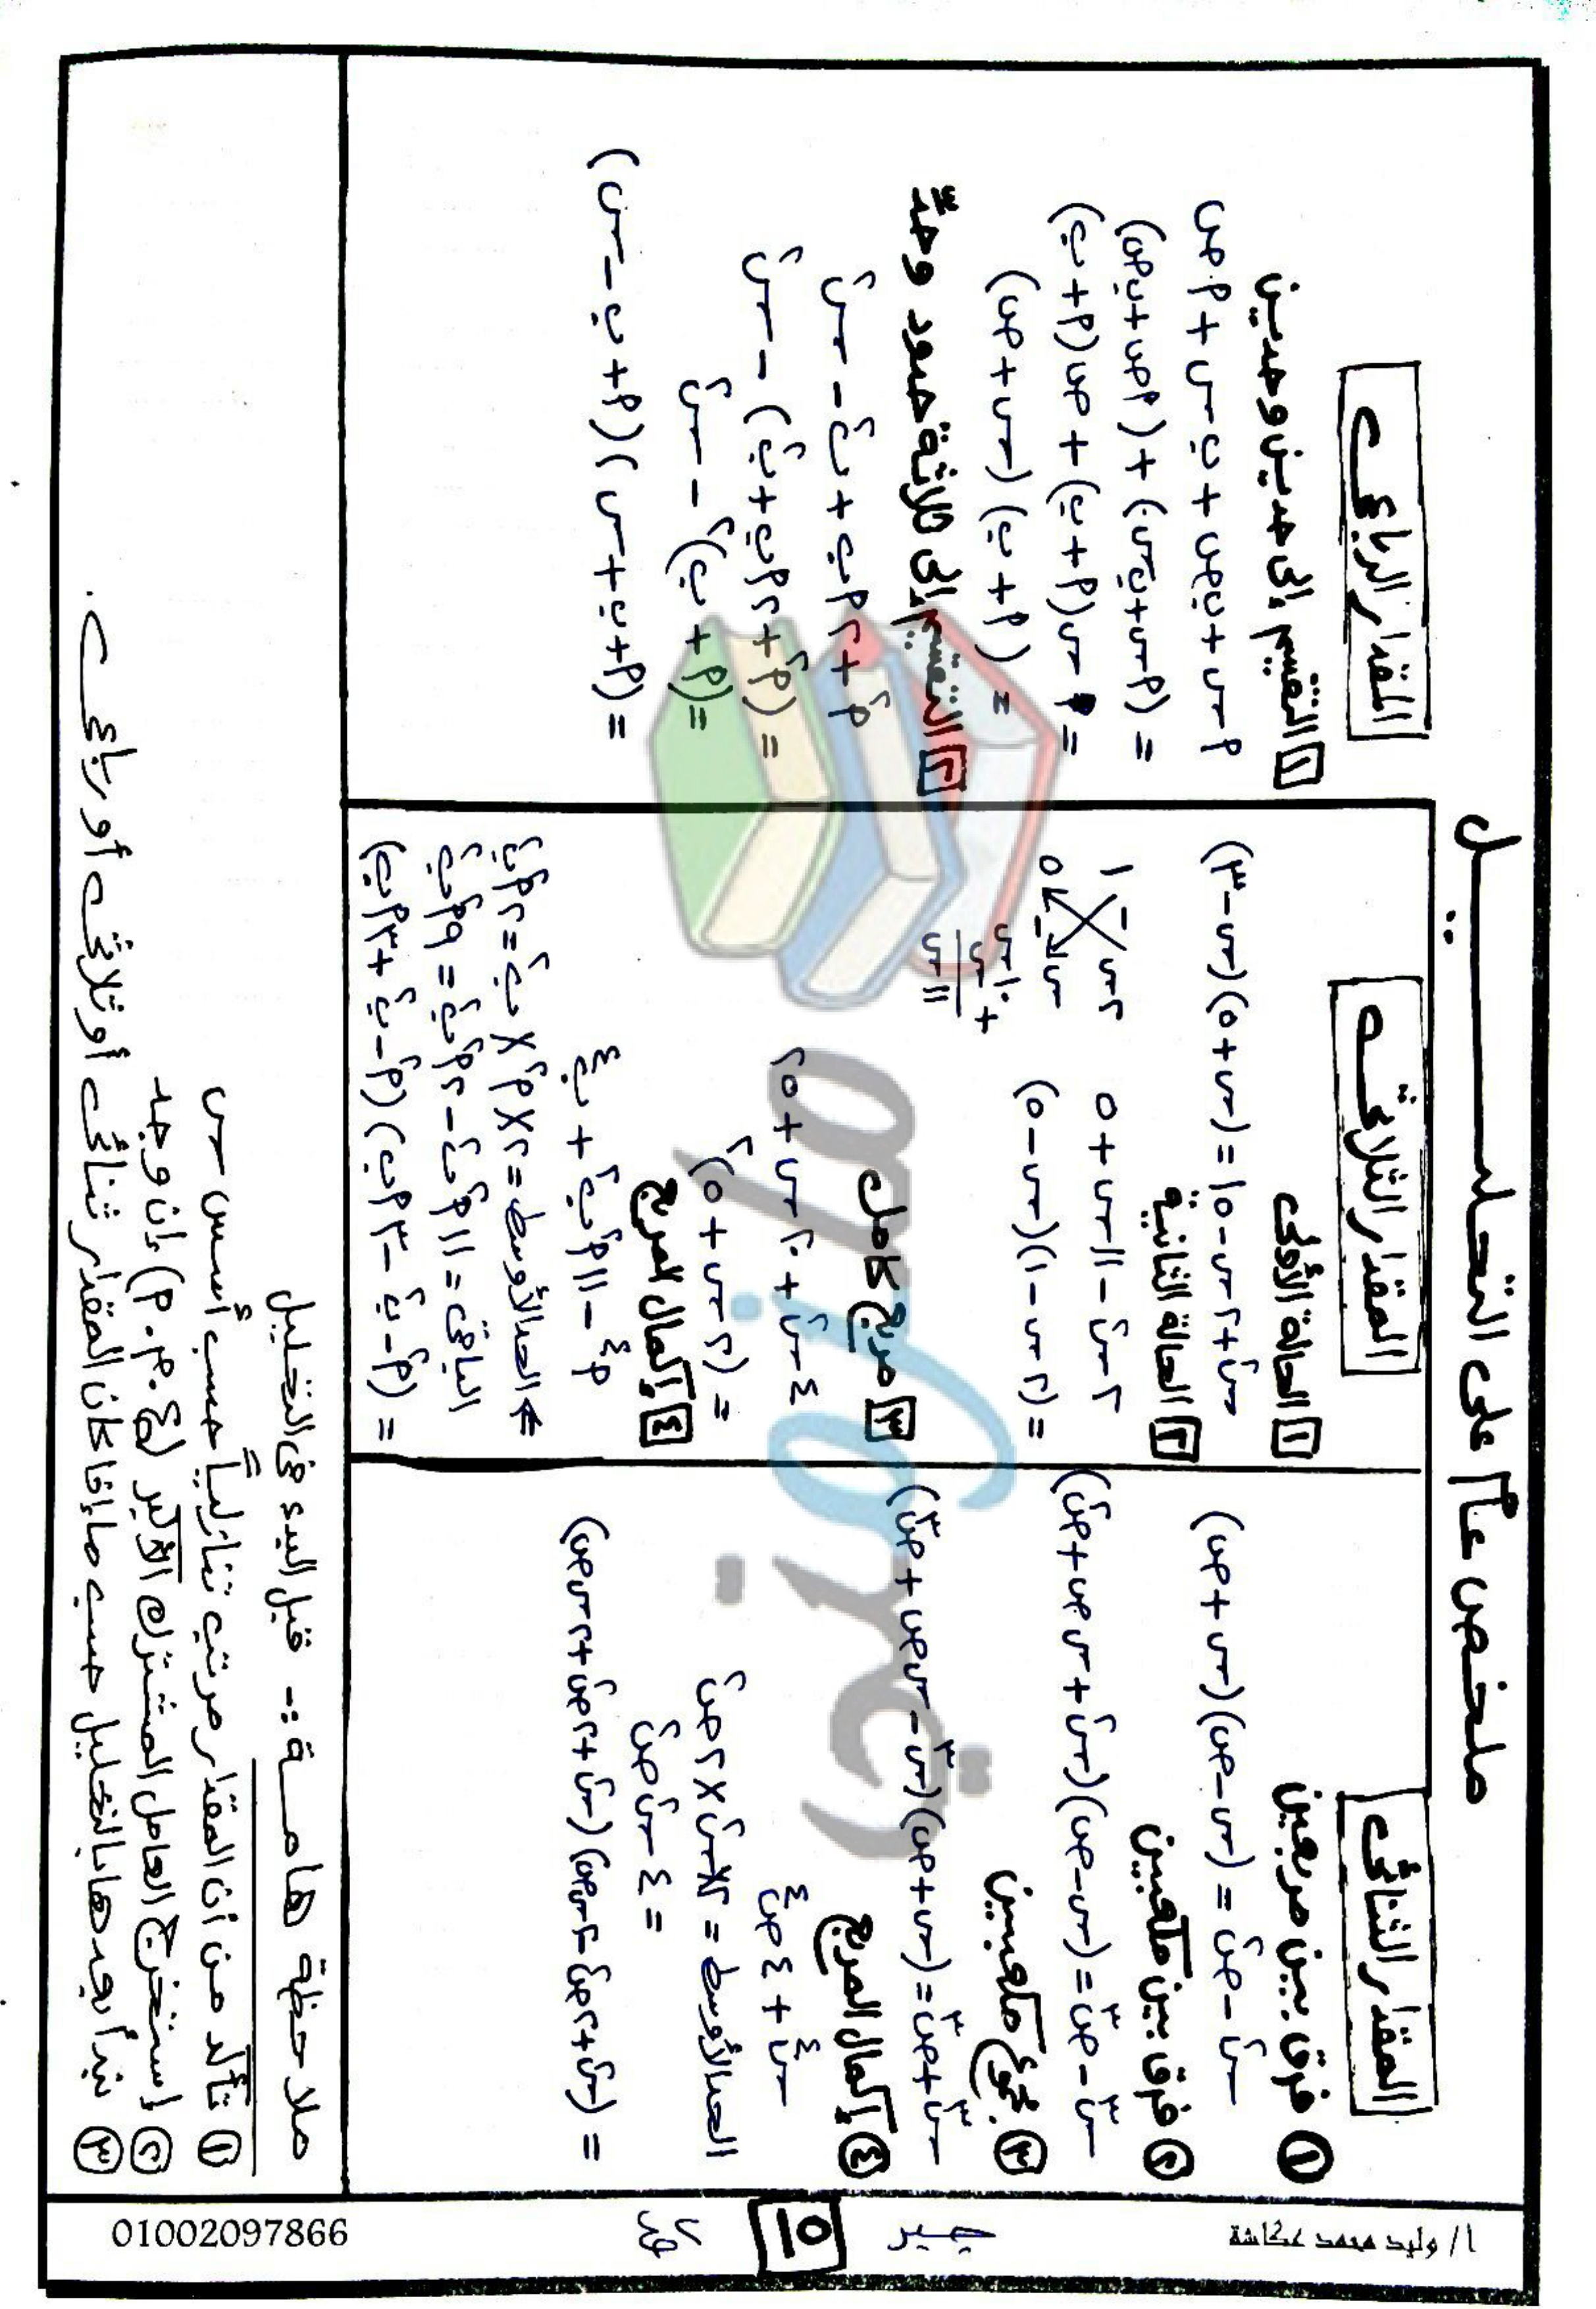 ملخص عام على التحليل
المقدار الثنائى
① فرق بين مربعين
س² - ص² = (س - ص)(س + ص)
② فرق بين مكعبين
س³ - ص³ = (س - ص)(س² + س ص + ص²)
③ مجموع مكعبين
س³ + ص³ = (س + ص)(س² - س ص + ص²)
④ إكمال المربع
س⁴ + ٤ص⁴
الحد الأوسط = ٢ × س² × ٢ص²
= ٤ س² ص²
= (س² + ٢ص² - ٢س ص)(س² + ٢ص² + ٢س ص)
المقدار الثلاثى
١ الحالة الأولى
س² + ٢س - ١٥ = (س + ٥)(س - ٣)
٢ الحالة الثانية
٢س² - ١١س + ٥
= (٢س - ١)(س - ٥)
٢س - ١
س - ٥
١٠س
+ س
١١س
٣ مربع كامل
٤س² + ٢٠س + ٢٥
= (٢س + ٥)²
٤ إكمال المربع
م⁴ - ١١م²ب² + ب⁴
الحد الأوسط = ٢ × م² × ب² = ٢م²ب²
الباقى = ١١م²ب² - ٢م²ب² = ٩م²ب²
= (م² - ب² - ٣م ب)(م² - ب² + ٣م ب)
المقدار الرباعى
١ التقسيم إلى حدين وحدين
م س + ب ص + ب س + م ص
= (م س + ب س) + (م ص + ب ص)
= س(م + ب) + ص(م + ب)
= (م + ب)(س + ص)
٢ التقسيم إلى ثلاثة حدود وحدّ
م² + ٢م ب + ب² - س²
= (م² + ٢م ب + ب²) - س²
= (م + ب)² - س²
= (م + ب + س)(م + ب - س)
ملاحظة هامة :- قبل البدء فى التحليل
① تأكد من أن المقدار مرتب تنازلياً حسب أسس س
② استخرج العامل المشترك الأكبر (ع . م . م) إن وجد
③ نبدأ بعدها بالتحليل حسب ما إذا كان المقدار ثنائى أو ثلاثى أو رباعى .
أ/ وليد محمد عكاشة
جبر
١٥
01002097866